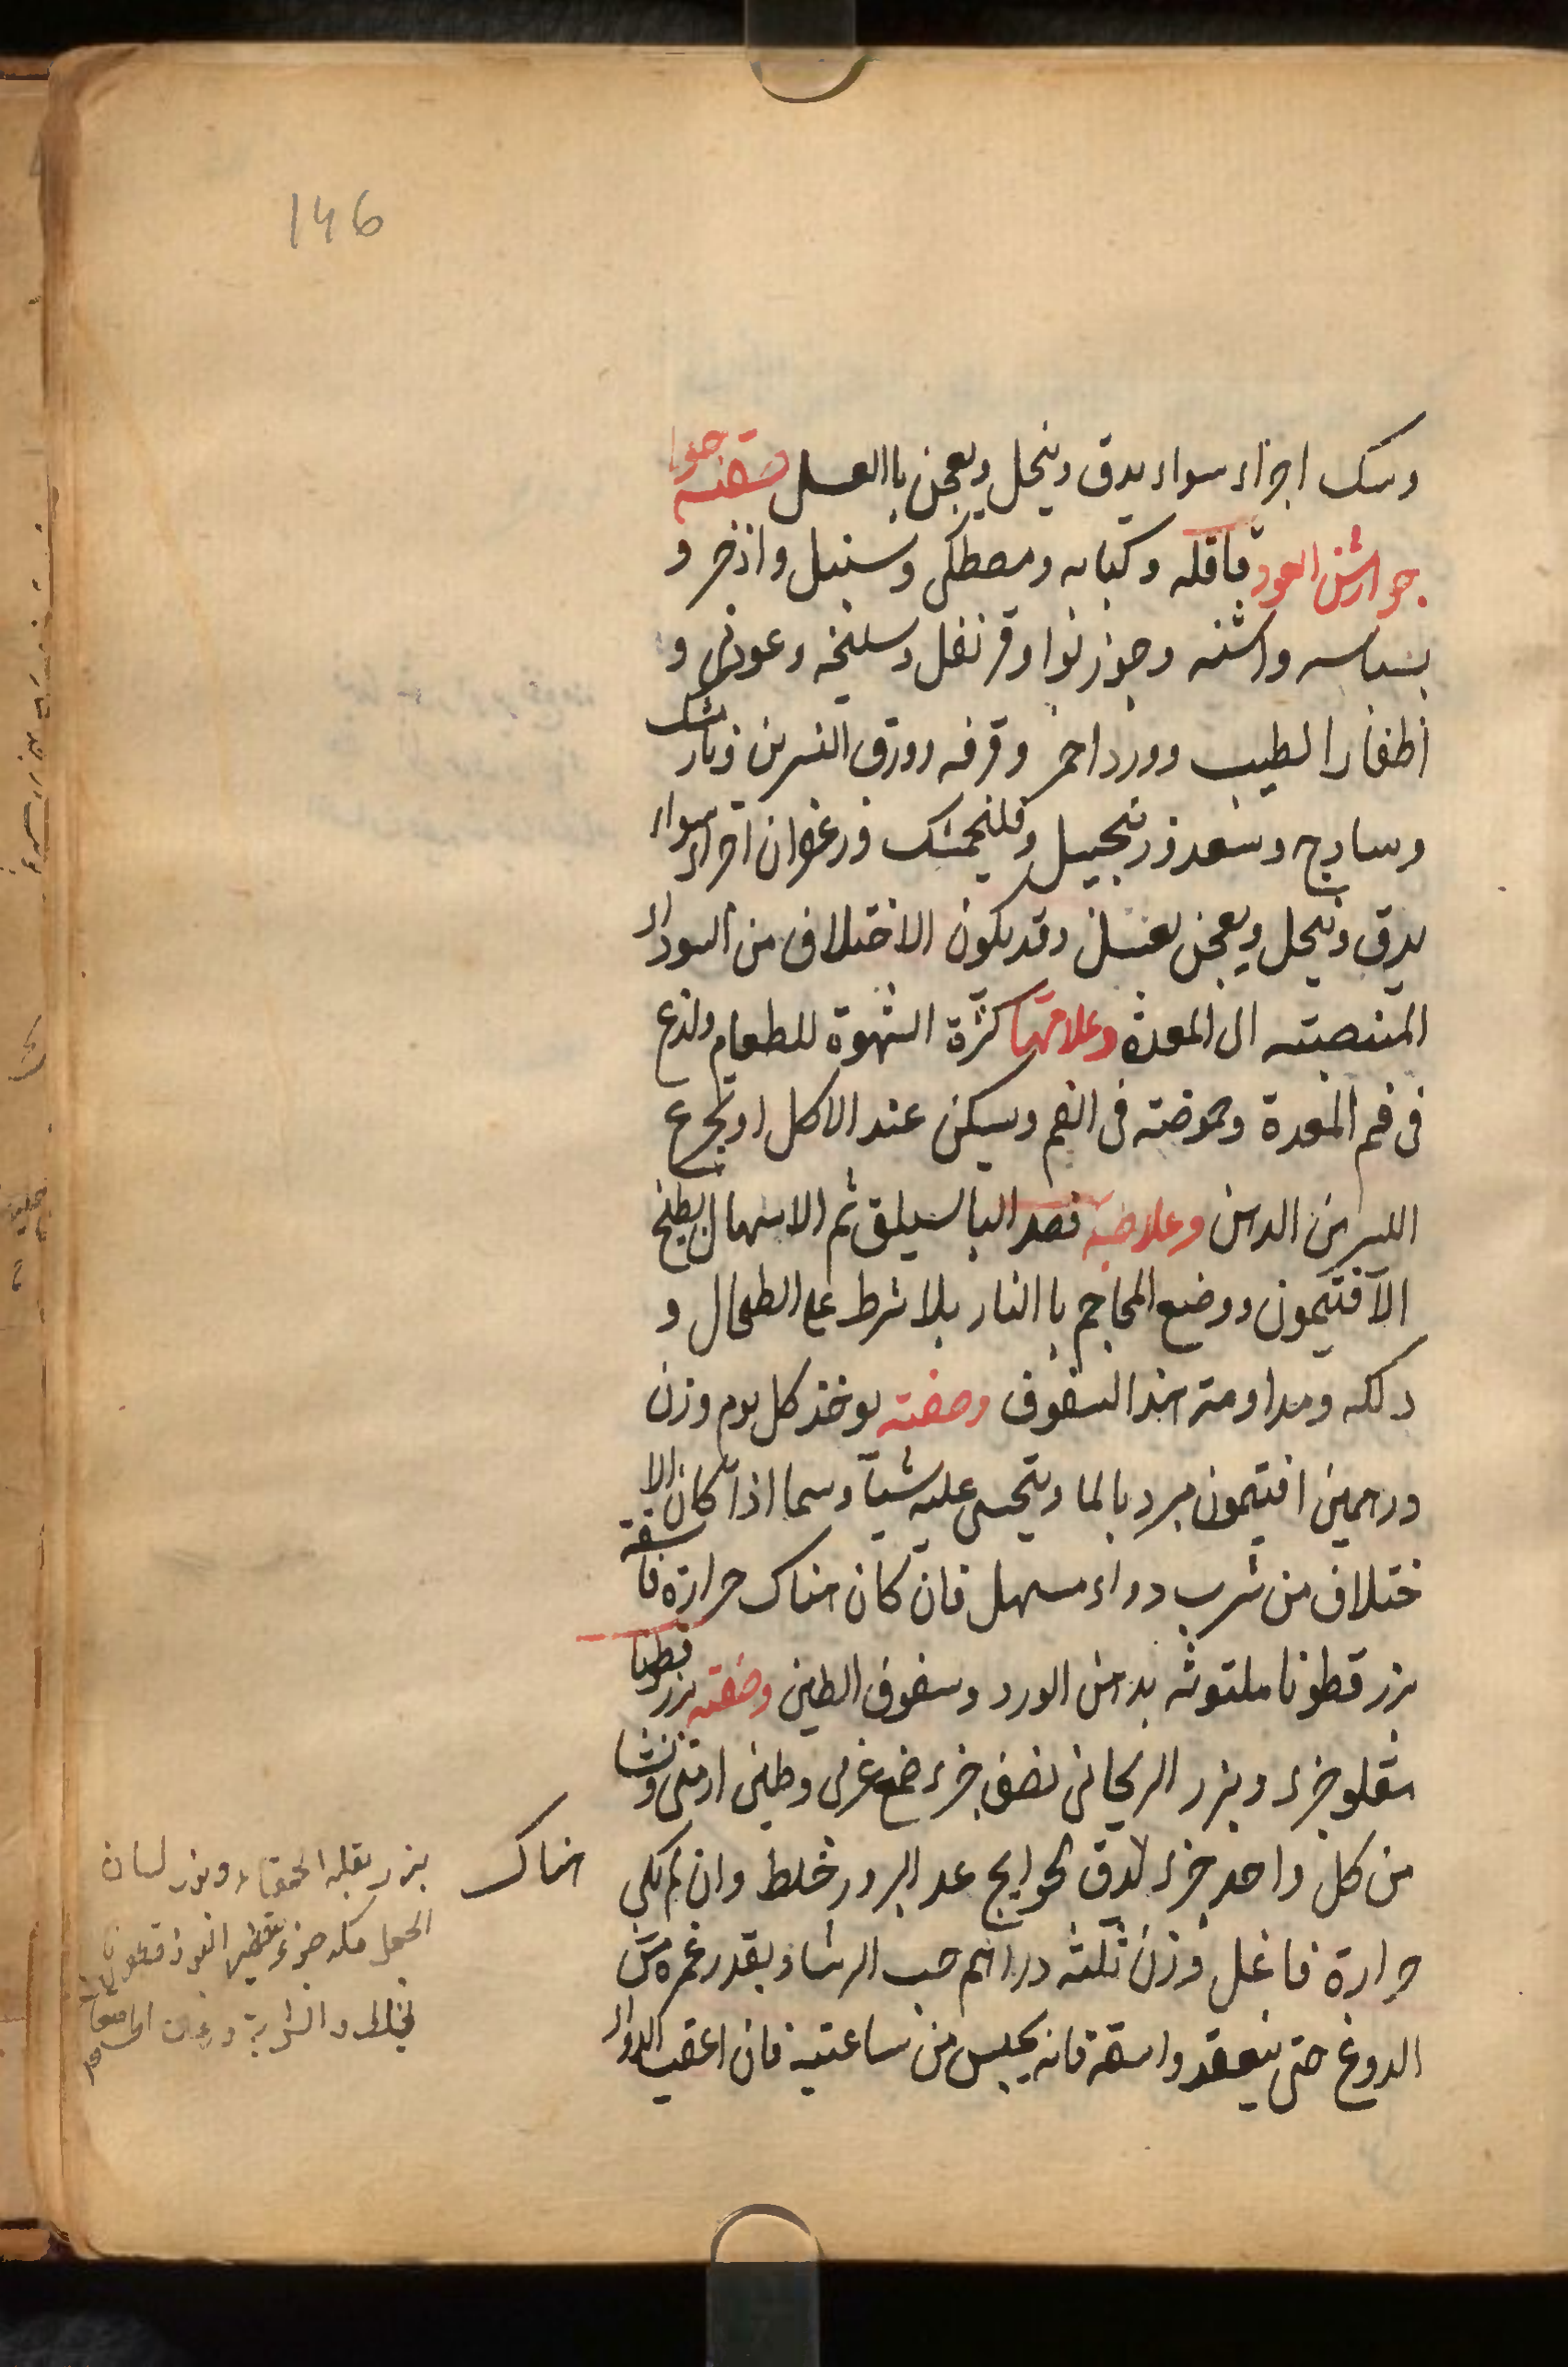 146
وسك اجزاء سواء يدق وينخل ويعجن باالعسل صفته جوا
جوارشن العود قاقله وكبابه ومصطكى وسنبل واذخر و
بسباسه واشنه وجوز بوا وقرنفل وسليخه وعودنى و
اظفار الطيب وورد احمر وقرفه وورق النسرين ونارمشك
وسادج وسعد وزنجبيل وفلنجمشك وزعفران اجزاء سواء
يدق وينخل ويعجن بعسل وقد يكون الاختلاف من السوداء
المنصبته الى المعدة وعلامتها كثرة الشهوة للطعام ولذع
فى فم المعدة وحموضته فى الفم وسيكن عند الاكل او تجرع
الدهن وعلاجه فصد الباسيلق ثم الاسهال بطبخ
الآفتيمون ووضع المحاجم باالنار بلا شرط على الطحال و
دلكه ومداومته هذا السفوف وصفته يوخذ كل يوم وزن
درهمين افتيمون مبرد بالما ويتحسى عليه شيآ وسما اذا كان الا
ختلاف من شرب دواء مسهل فان كان هناك حرارة فاسقه
بزر قطونا ملتوثه بدهن الورد وسفوف الطين وصفته بزر قطونا
مقلو جزء وبزر الريحانى نصف جزء صمغ عربى وطين ارمنى ونشا
من كل واحد جزء لدق لحوايج عد البزور خلط وان لم يكى هناك
حرارة فاغل وزن ثلثه دراهم حب الرشاد بقدر غمره من
الدوغ حتى ينعقد واسقه فانه يحبس من ساعتيه فان اعقب الدواء
بزر بقله الحمقاء وبزر لسان
الحمل مكد جزء